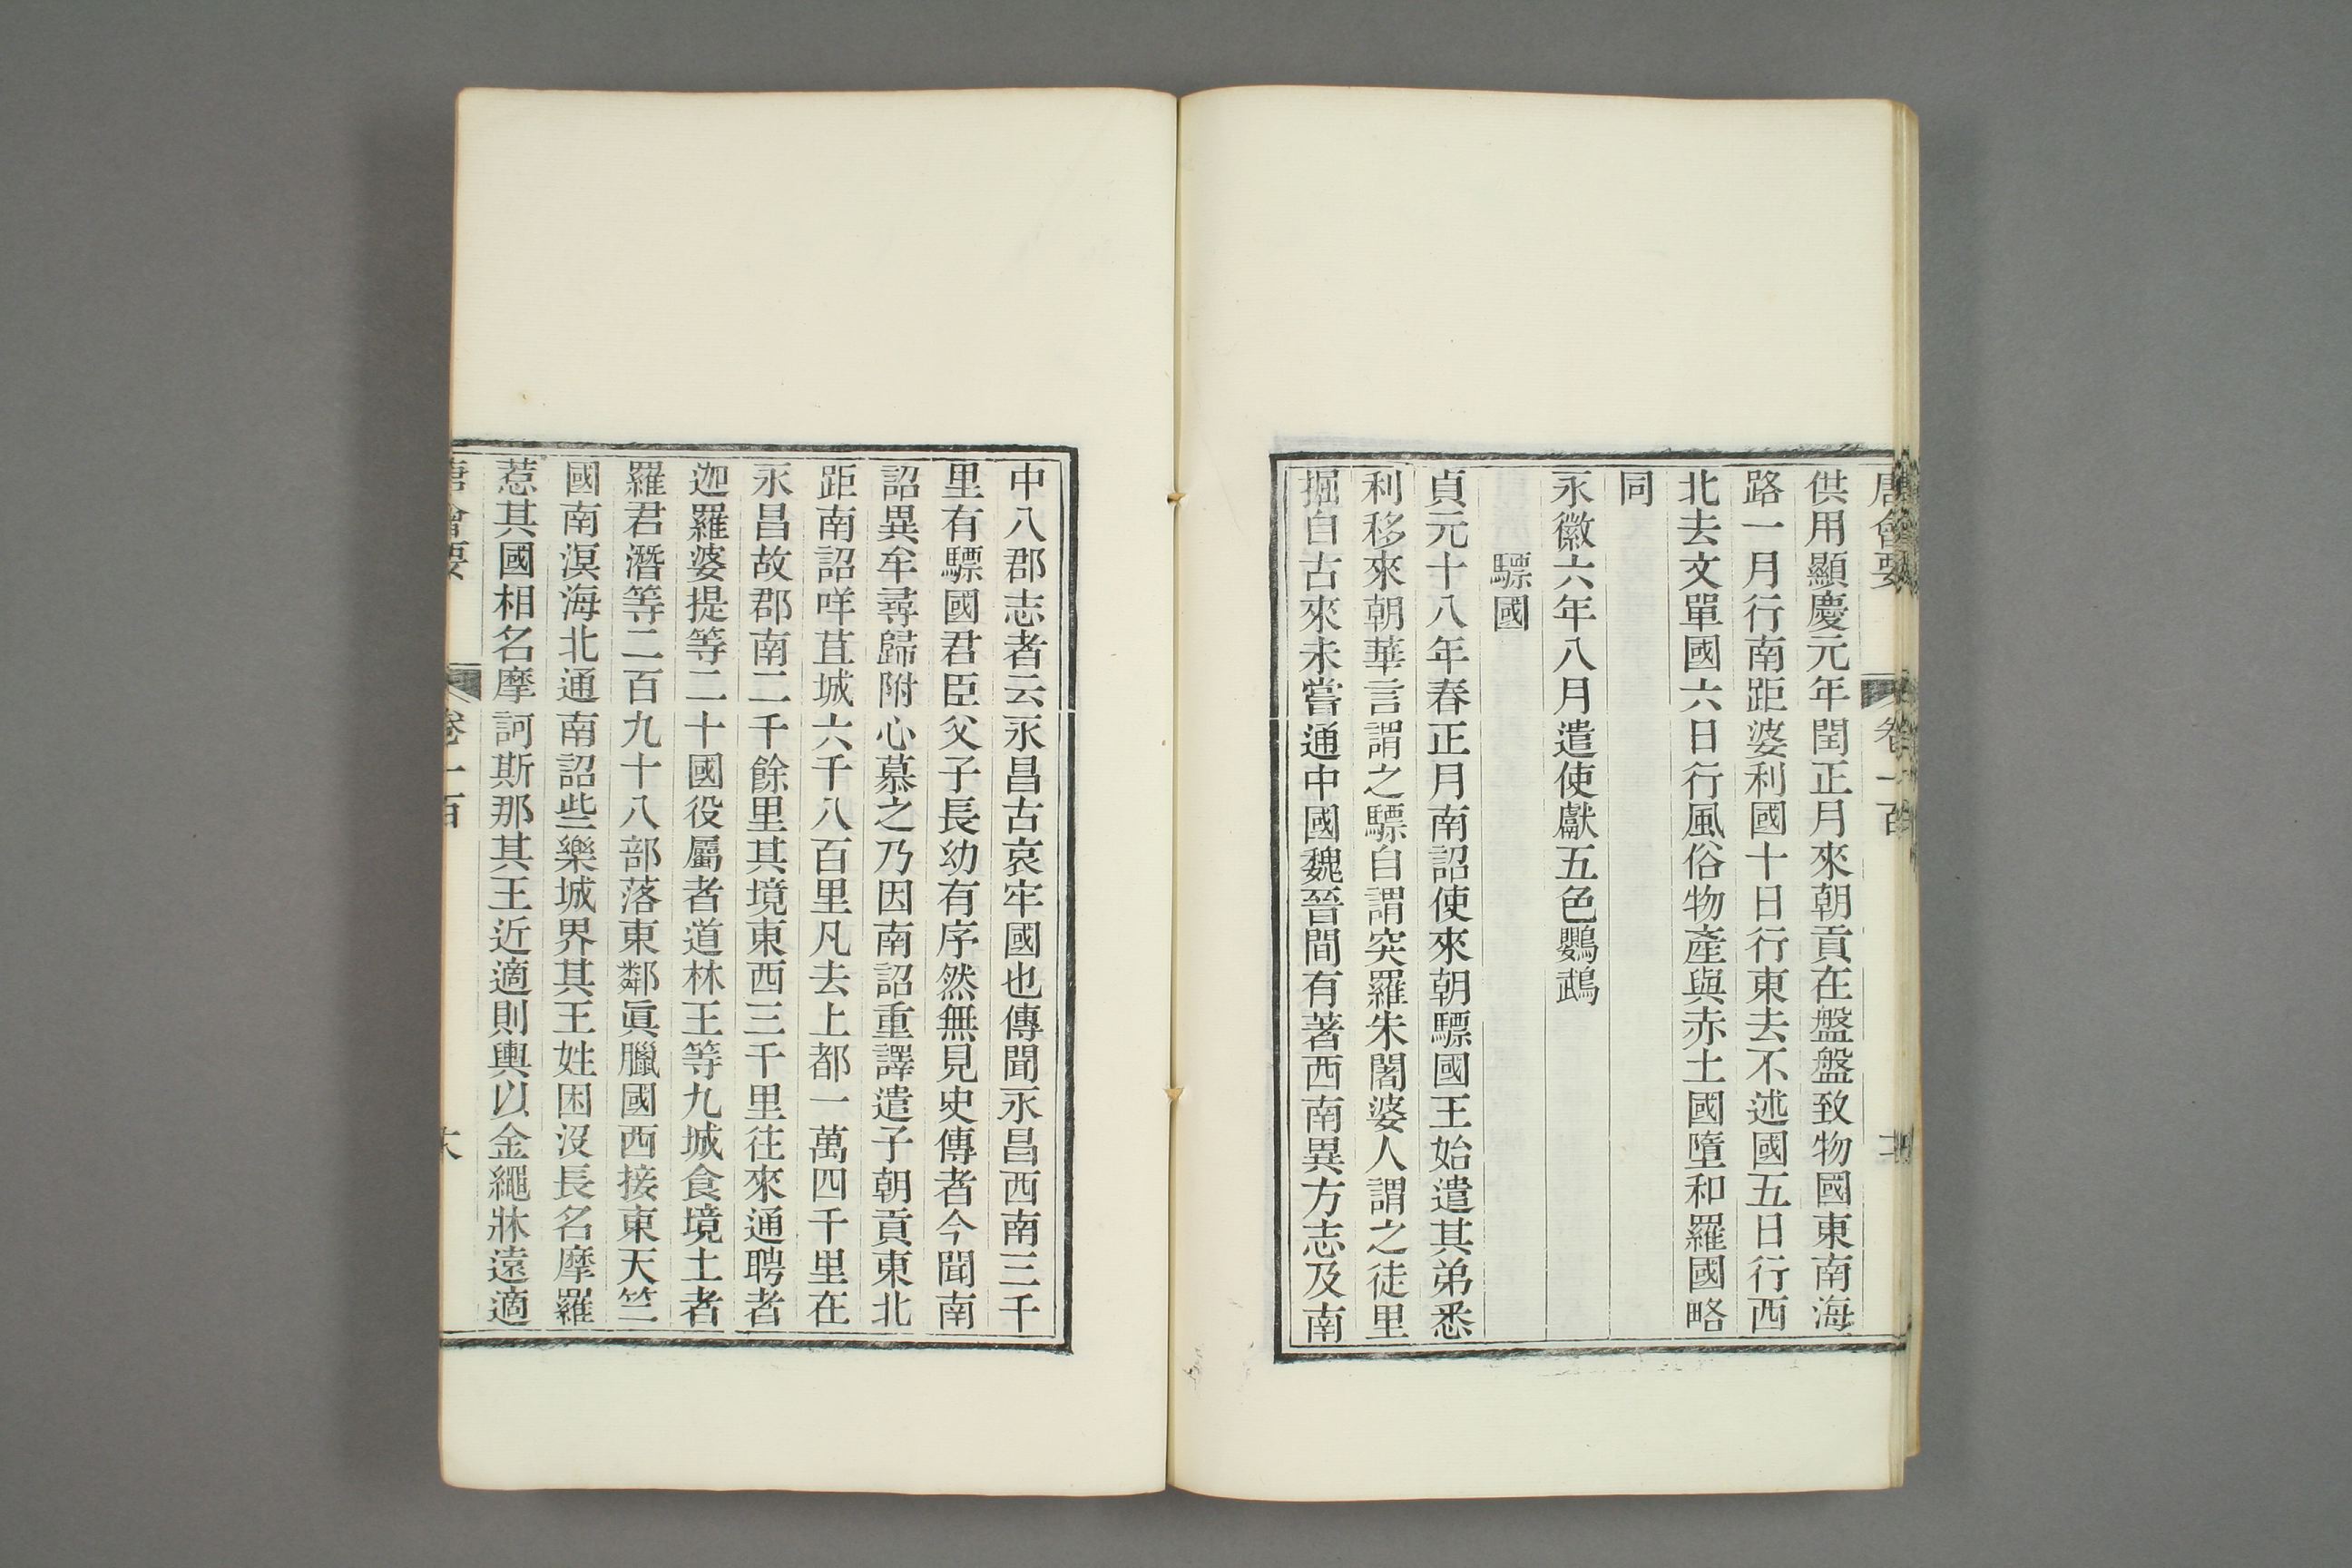 唐會要 卷一百
供用顯慶元年閏正月來朝貢在盤盤致物國東南海
路一月行南距婆利國十日行東去不述國五日行西
北去文單國六日行風俗物產與赤土國墮和羅國略
同
永徽六年八月遣使獻五色鸚鵡
驃國
貞元十八年春正月南詔使來朝驃國王始遣其弟悉
利移來朝華言謂之驃自謂突羅朱闍婆人謂之徒里
掘自古來未嘗通中國魏晉間有著西南異方志及南
中八郡志者云永昌古哀牢國也傳聞永昌西南三千
里有驃國君臣父子長幼有序然無見史傳者今聞南
詔異牟尋歸附心慕之乃因南詔重譯遣子朝貢東北
距南詔咩苴城六千八百里凡去上都一萬四千里在
永昌故郡南二千餘里其境東西三千里往來通聘者
迦羅婆提等二十國役屬者道林王等九城食境土者
羅君潛等二百九十八部落東鄰眞臘國西接東天竺
國南溟海北通南詔些樂城界其王姓困沒長名摩羅
惹其國相名摩訶斯那其王近適則輿以金繩牀遠適
唐會要 卷一百